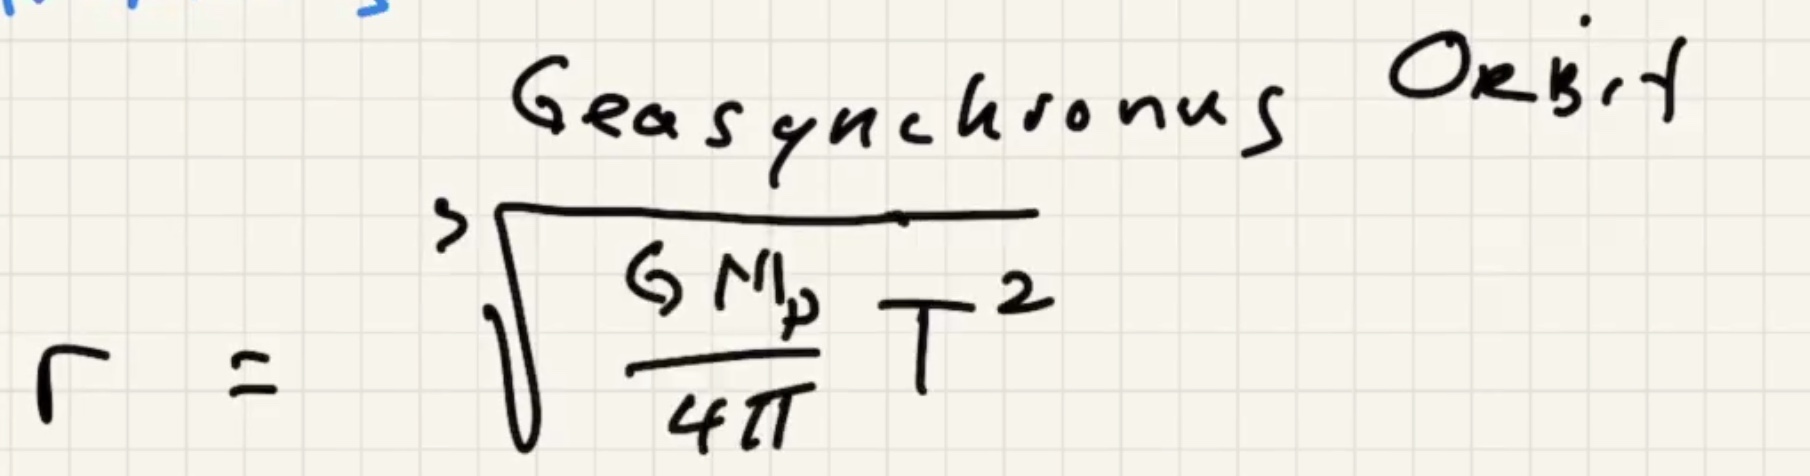 Geasynchronus Orbit
r = ∛(G Mp / 4π T²)